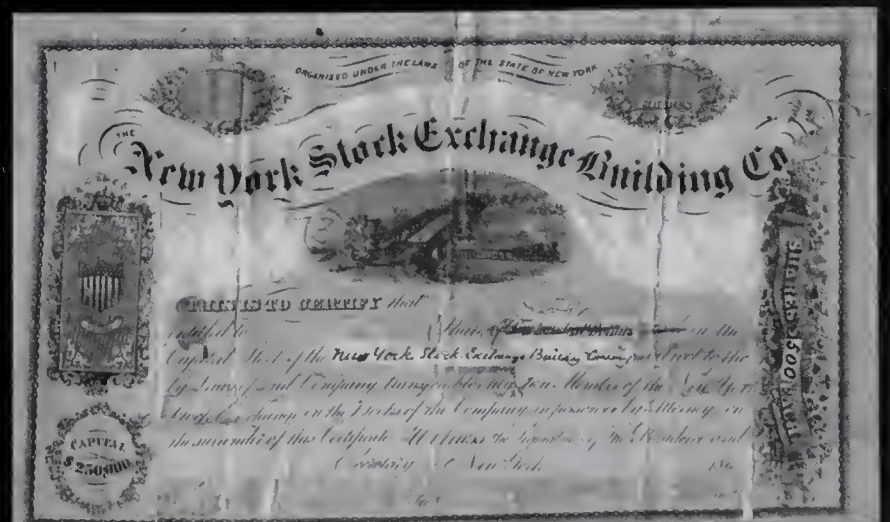 ORGANIZED UNDER THE LAWS OF THE STATE OF NEW YORK
THE
New York Stock Exchange Building Co
THIS IS TO CERTIFY that
entitled to Shares of in the
Capital Stock of the New York Stock Exchange Building Company subject to the
By Laws of said Company transferable to a Member of the New York
Stock Exchange on the Books of the Company in person or by Attorney on
the surrender of this Certificate Witness the Signatures of the President and
Secretary New York 186
CAPITAL
$250,000
SHARES $500 EACH